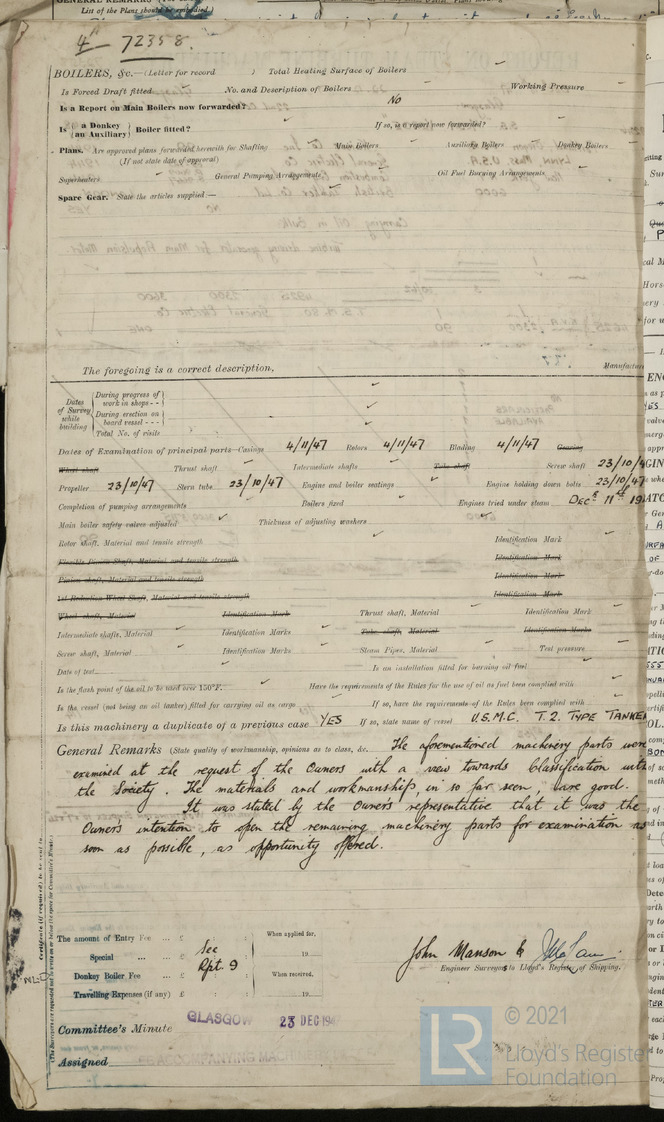 List of the Plans should be embodied.)
4a 72358.
BOILERS, &c.—(Letter for record ) Total Heating Surface of Boilers
Is Forced Draft fitted No. and Description of Boilers Working Pressure
Is a Report on Main Boilers now forwarded? No
Is { a Donkey / an Auxiliary } Boiler fitted? If so, is a report now forwarded?
Plans. Are approved plans forwarded herewith for Shafting Main Boilers Auxiliary Boilers Donkey Boilers
(If not state date of approval)
Superheaters General Pumping Arrangements Oil Fuel Burning Arrangements
Spare Gear. State the articles supplied—
The foregoing is a correct description, Manufacture
Dates of Survey while building { During progress of work in shops - -
During erection on board vessel - - -
Total No. of visits
Dates of Examination of principal parts—Casings 4/11/47 Rotors 4/11/47 Blading 4/11/47 Gearing
Wheel shaft Thrust shaft Intermediate shafts Tube shaft Screw shaft 23/10/4
Propeller 23/10/47 Stern tube 23/10/47 Engine and boiler seatings Engine holding down bolts 23/10/47
Completion of pumping arrangements Boilers fixed Engines tried under steam Decr 11th 19
Main boiler safety valves adjusted Thickness of adjusting washers
Rotor shaft, Material and tensile strength Identification Mark
Flexible Pinion Shaft, Material and tensile strength Identification Mark
Pinion shaft, Material and tensile strength Identification Mark
1st Reduction Wheel Shaft, Material and tensile strength Identification Mark
Wheel shaft, Material Identification Mark Thrust shaft, Material Identification Mark
Intermediate shafts, Material Identification Marks Tube shaft, Material Identification Marks
Screw shaft, Material Identification Marks Steam Pipes, Material Test pressure
Date of test Is an installation fitted for burning oil fuel
Is the flash point of the oil to be used over 150°F. Have the requirements of the Rules for the use of oil as fuel been complied with
Is the vessel (not being an oil tanker) fitted for carrying oil as cargo If so, have the requirements of the Rules been complied with
Is this machinery a duplicate of a previous case YES If so, state name of vessel U.S.M.C. T.2. TYPE TANKER
General Remarks (State quality of workmanship, opinions as to class, &c. The aforementioned machinery parts were
examined at the request of the Owners with a view towards Classification with
the Society. The materials and workmanship, in so far seen, are good.
It was stated by the Owner's representative that it was the
Owner's intention to open the remaining machinery parts for examination as
soon as possible, as opportunity offered.
The amount of Entry Fee ... £ : : When applied for,
Special ... £ See Rpt. 9 19
Donkey Boiler Fee ... £ When received,
Travelling Expenses (if any) £ : : 19
John Manson &
Engineer Surveyors to Lloyd's Register of Shipping.
Committee's Minute GLASGOW 23 DEC 194
Assigned ACCOMPANYING MACHINERY
LR © 2021
Lloyd's Register
Foundation